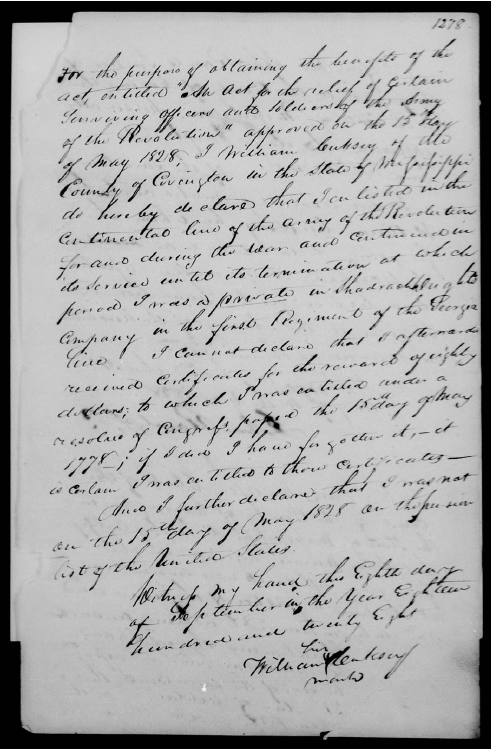 1278
For the purpose of obtaining the benefits of the
act, entitled "An Act for the relief of Certain
Surviving officers and Soldiers of the Army
of the Revolution" approved on the 15 day
of May 1828, I William of the
County of Covington in the State of Mississippi
do hereby declare that I enlisted in the
Continental line of the army of the Revolution
for and during the war and continued in
its service until its termination at which
period I was a private in Shadrach
Company in the first Regiment of the Georgia
line I cannot declare that I afterwards
received Certificates for the reward of eighty
dollars, to which I was entitled under a
resolve of Congress, passed the 15th day of May
1778—; if I did I have forgotten it,— it
is certain I was entitled to those certificates—
And I further declare that I was not
on the 15th day of May 1828 on the pension
list of the United States.
Witness my hand this Eighth day
of September in the Year Eighteen
hundred and twenty Eight
his
William
mark